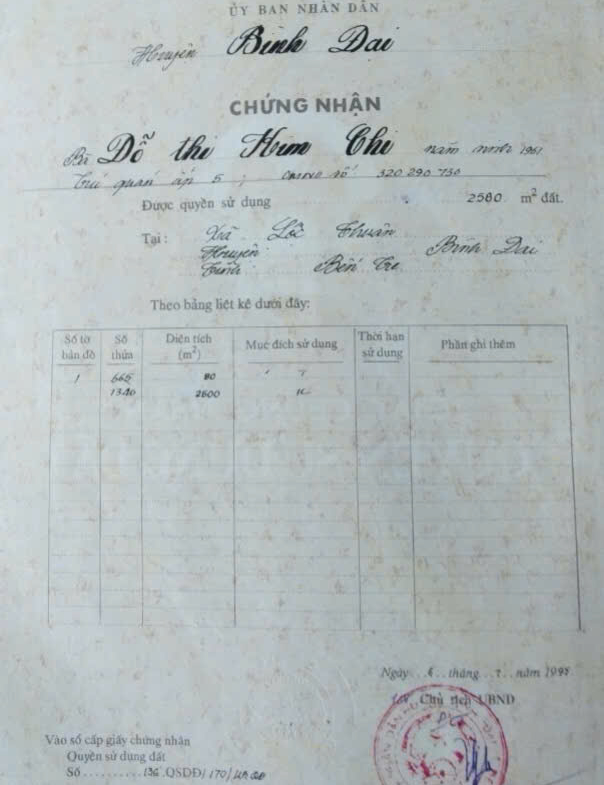 ỦY BAN NHÂN DÂN
Huyện Bình Đại
CHỨNG NHẬN
Bà Đỗ thị Kim Chi năm sinh 1961
Trú quán ấp 5 ; CMND số 320 290 730
Được quyền sử dụng 2580 m² đất.
Tại: Xã Lộc Thuận
Huyện Bình Đại
Tỉnh Bến Tre
Theo bảng liệt kê dưới đây:
Số tờ bản đồ Số thửa Diện tích (m²) Mục đích sử dụng Thời hạn sử dụng Phần ghi thêm
1 665 80 T
1340 2500
Ngày 6 tháng 7 năm 1995
TM. Chủ tịch UBND
Vào sổ cấp giấy chứng nhận
Quyền sử dụng đất
Số 136 QSDĐ/170/